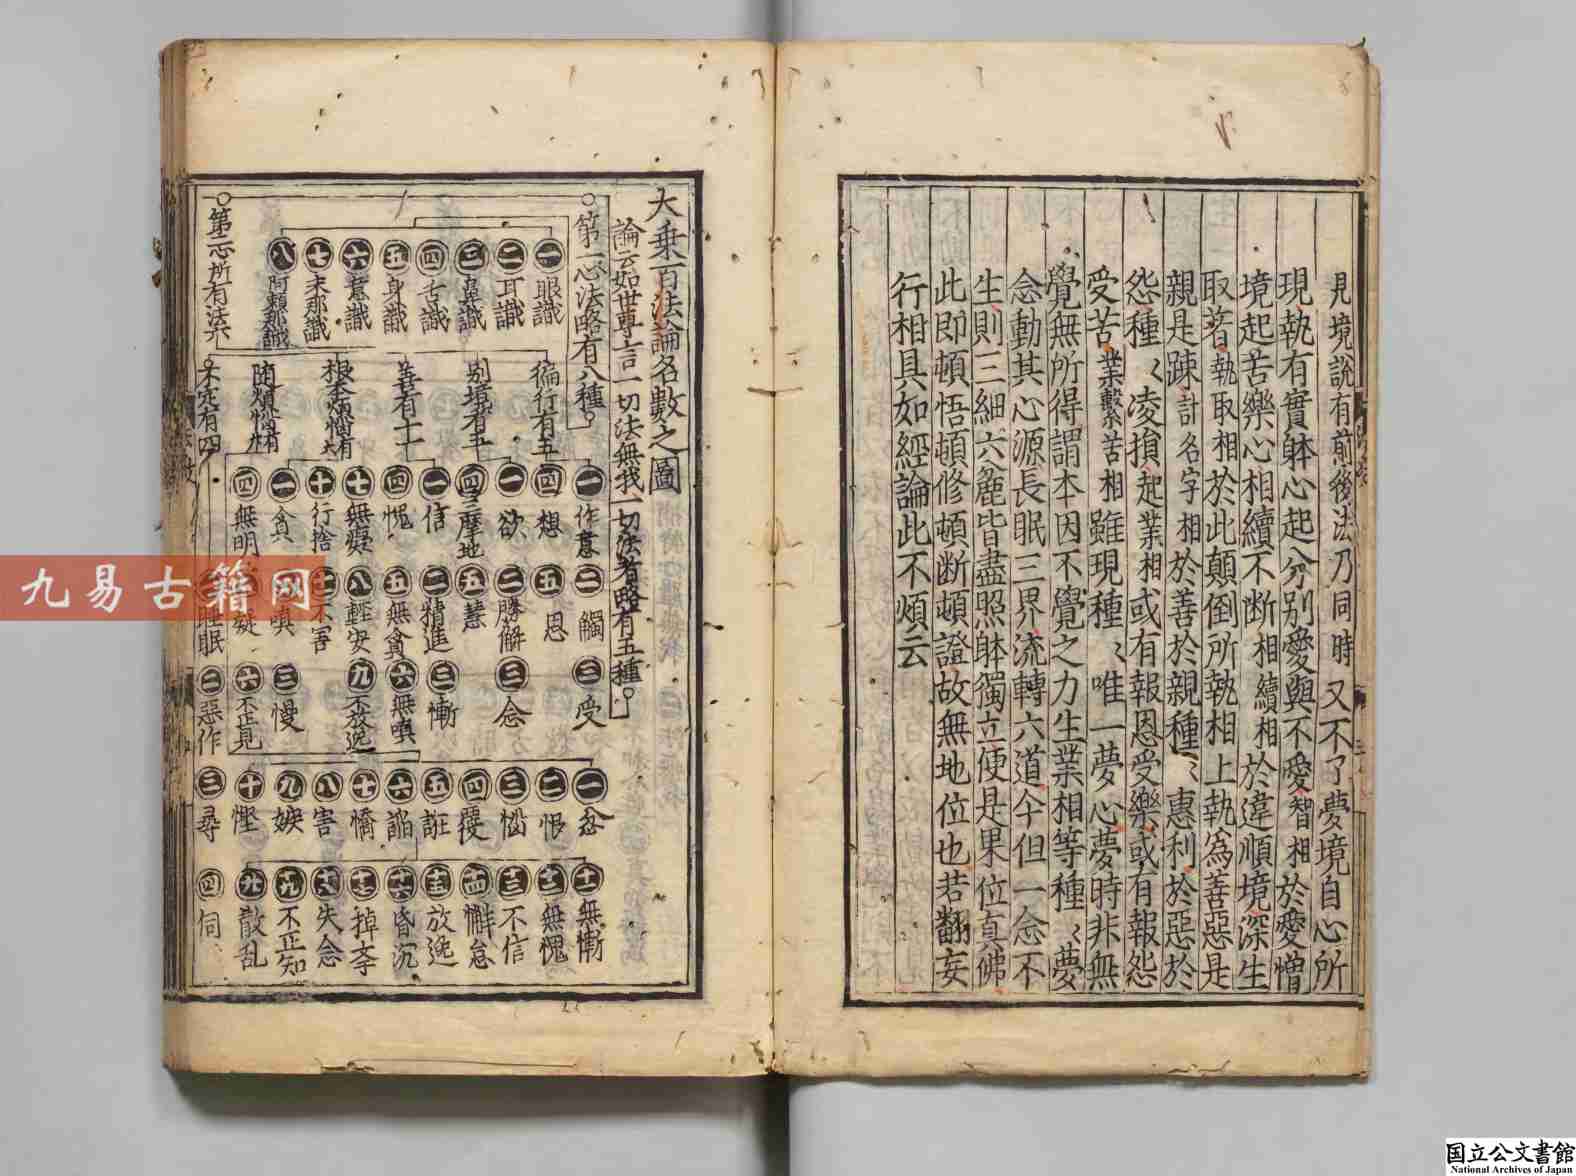 見境說有前後法乃同時又不了夢境自心所
現執有實躰心起分別愛與不愛智相於愛憎
境起苦樂心相續不断相續相於違順境深生
取著執取相於此顛倒所執相上執為善惡是
親是踈計名字相於善於親種〻惠利於惡於
怨種〻凌損起業相或有報恩受樂或有報怨
受苦業繫苦相雖現種〻唯一夢心夢時非無
覺無所得謂本因不覺之力生業相等種〻夢
念動其心源長眠三界流轉六道今但一念不
生則三細六麁皆盡照躰獨立便是果位真佛
此即頓悟頓修頓断頓證故無地位也若翻妄
行相具如經論此不煩云
大乗百法論名數之圖
論云如世尊言一切法無我一切法者略有五種
第一心法略有八種
一眼識
二耳識
三鼻識
四舌識
五身識
六意識
七末那識
八阿賴耶識
第二心所有法六
徧行有五
别境有五
善有十一
根本煩惱有六
隨煩惱有二十
不定有四
一作意 二觸 三受
四想 五思
一欲 二勝解 三念
四三摩地 五慧
一信 二精進 三慚
四愧 五無貪 六無嗔
七無癡 八輕安 九不放逸
十行捨 十一不害
一貪 二嗔 三慢
四無明 五疑 六不正見
一睡眠 二惡作 三尋 四伺
一忿 二恨 三惱 四覆 五誑 六諂 七憍 八害 九嫉 十慳
十一無慚 十二無愧 十三不信 十四懈怠 十五放逸 十六昏沉 十七掉擧 十八失念 十九不正知 二十散乱
九易古籍网
国立公文書館
National Archives of Japan